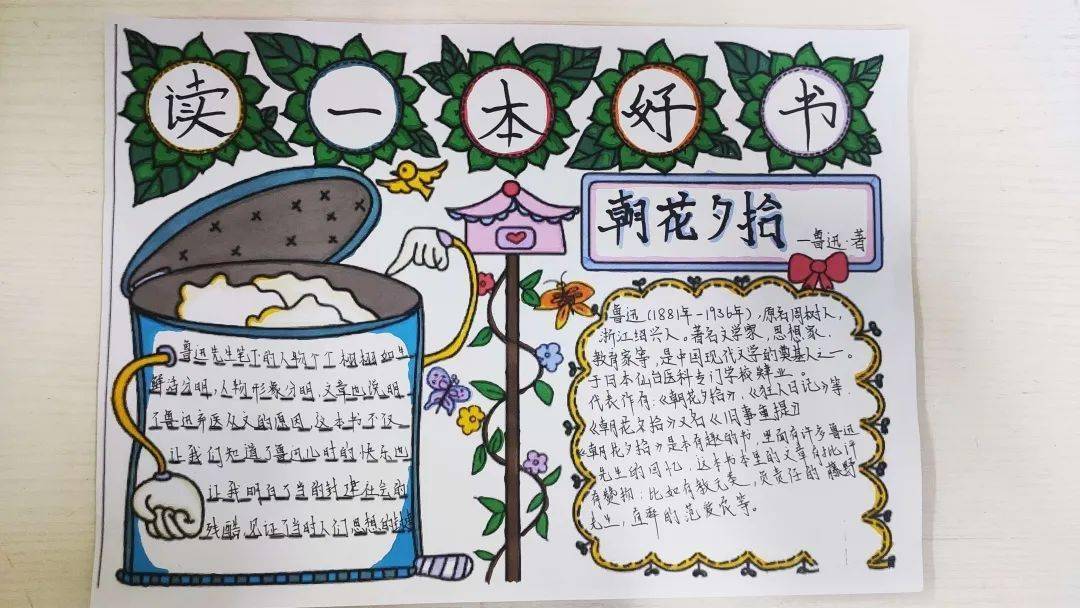 读一本好书
朝花夕拾
—鲁迅·著
鲁迅先生笔下的人物个个栩栩如生
鲜活分明,人物形象分明,文章也说明
了鲁迅弃医从文的原因,这本书不仅
让我们知道了鲁迅儿时的快乐也
让我明白了当时封建社会的
残酷,见证了当时人们思想的
鲁迅(1881年-1936年),原名周树人,
浙江绍兴人。著名文学家,思想家.
教育家等,是中国现代文学的奠基人之一。
于日本仙台医科专门学校肄业。
代表作有:《朝花夕拾》、《狂人日记》等.
《朝花夕拾》又名《旧事重提》
《朝花夕拾》是本有趣的书,里面有许多鲁迅
先生的回忆,这本书本里的文章有批评
有赞扬:比如有教无类,负责任的藤野
先生,直率的范爱农等。